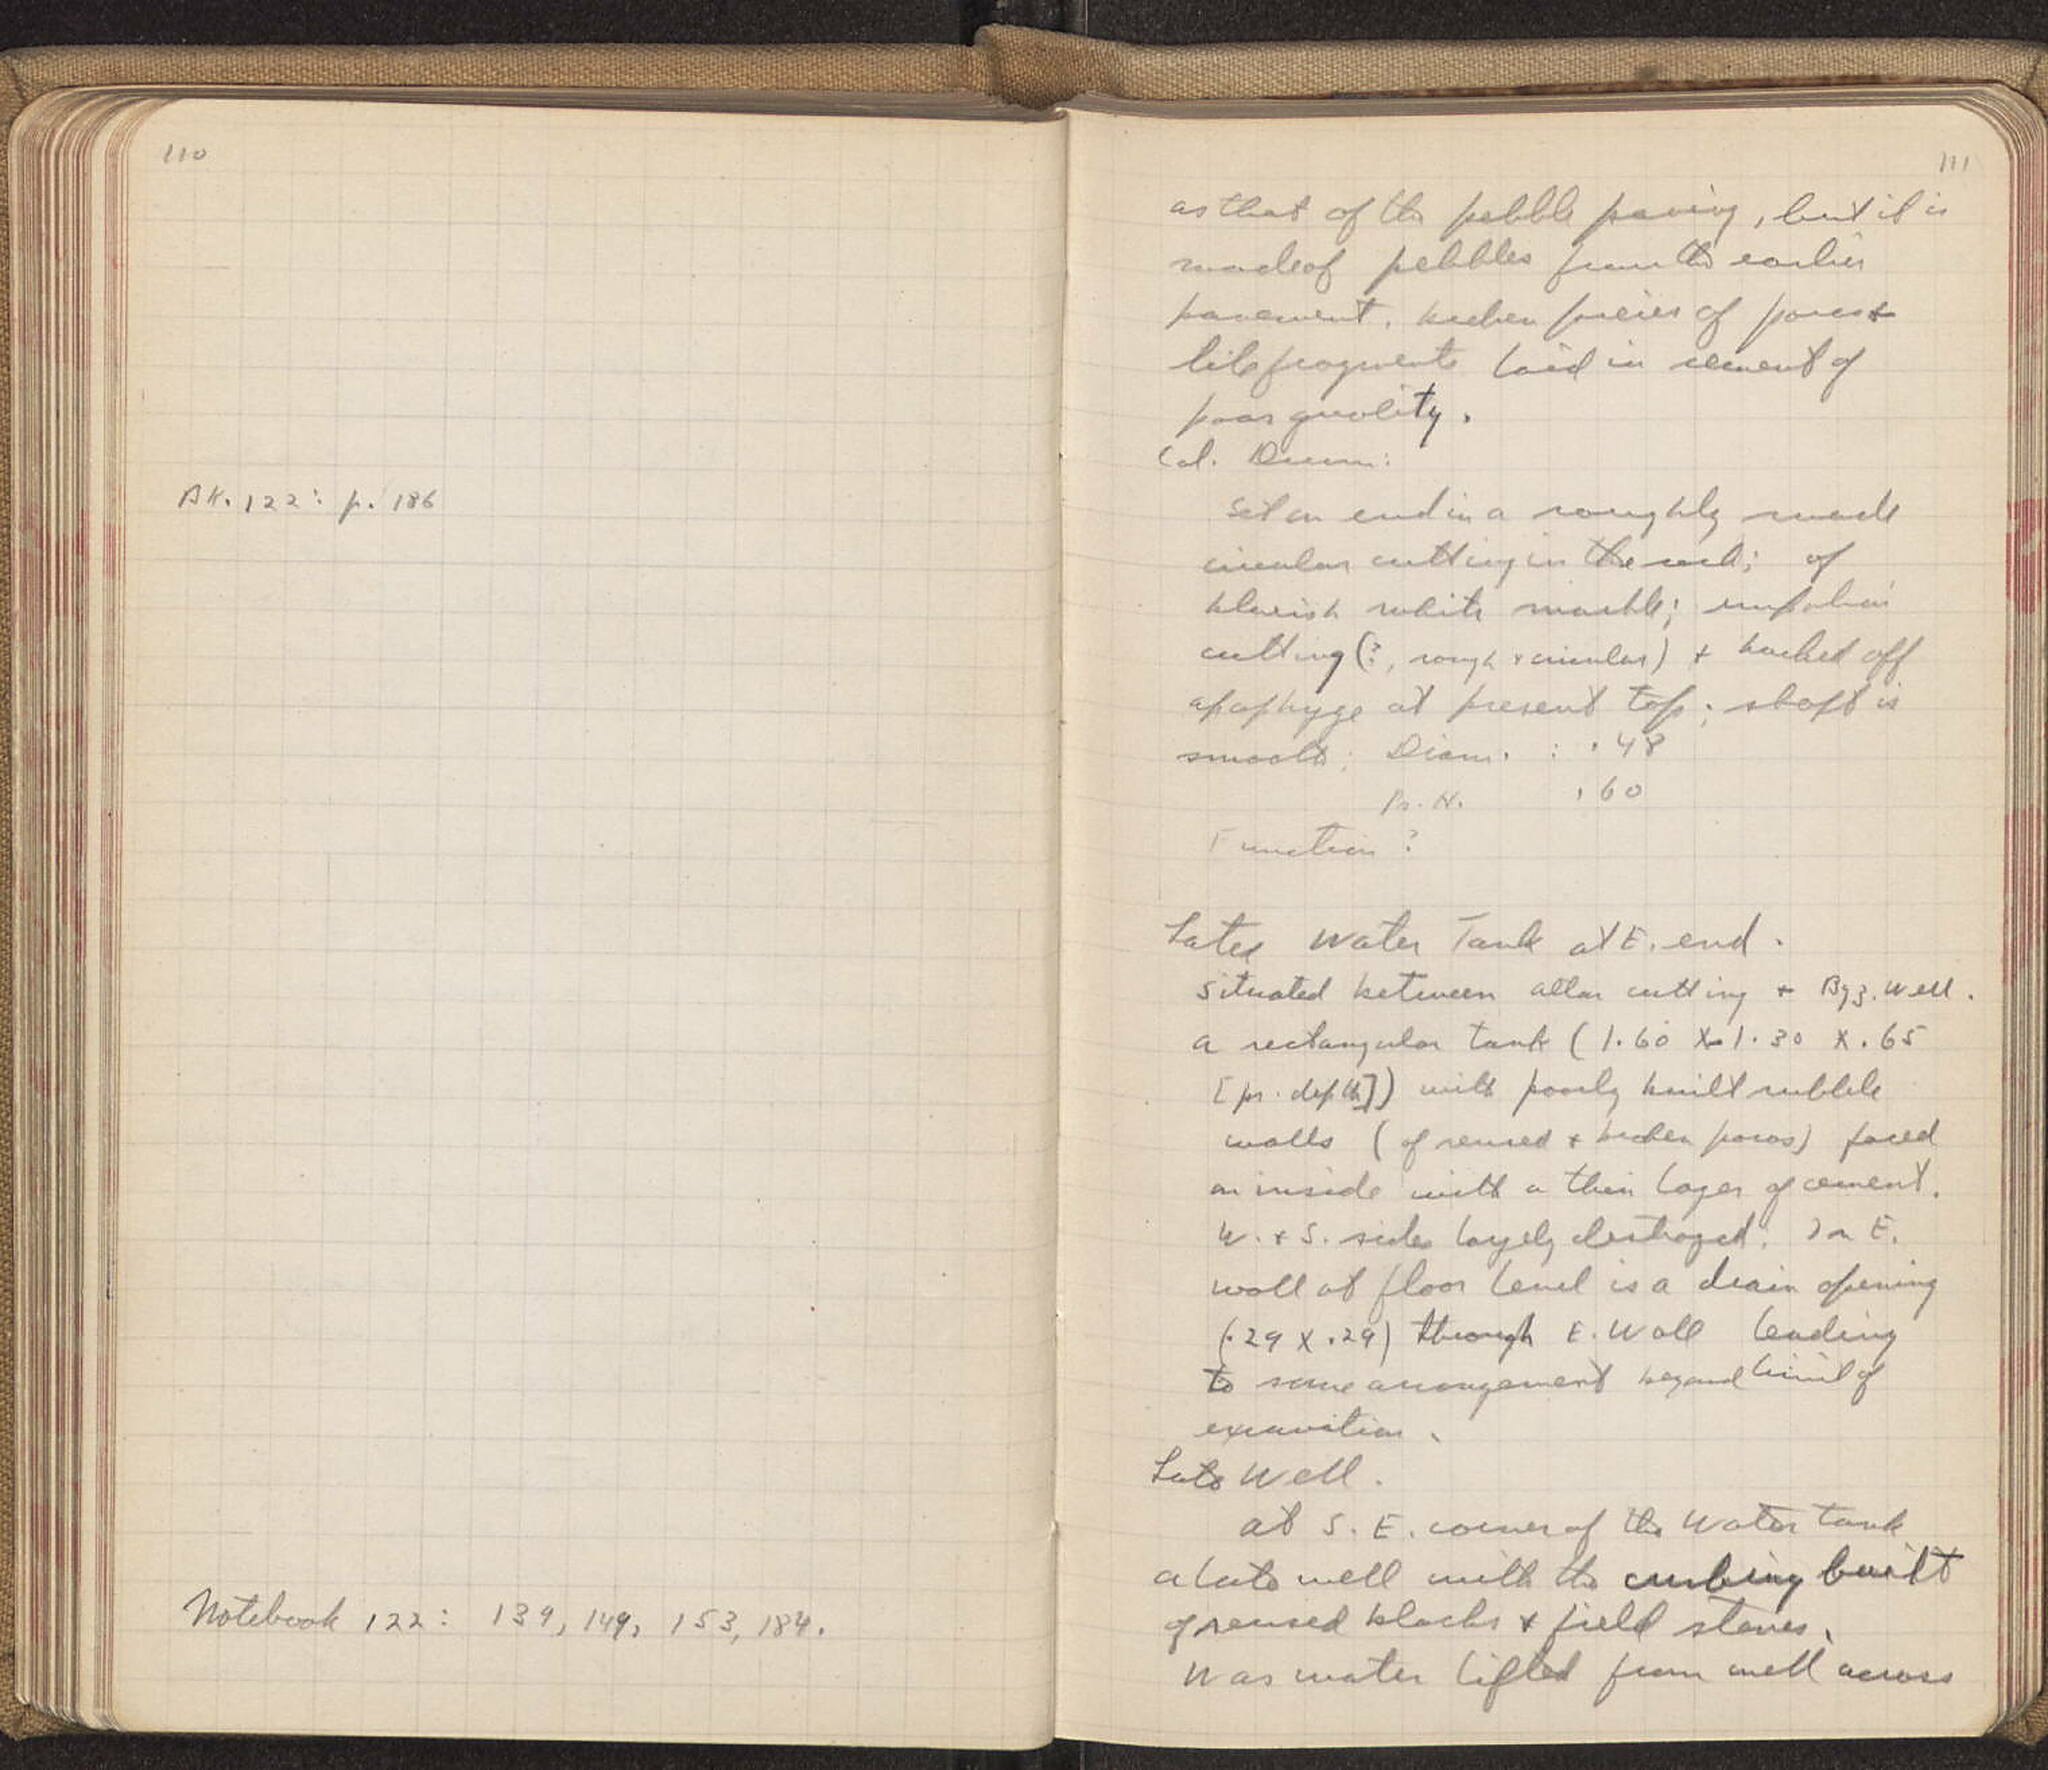 110
BK. 122: p. 186
Notebook 122: 139, 149, 153, 184.
111
as that of the pebble paving, but it is
made of pebbles from the earlier
pavement, broken pieces of poros +
tile fragments laid in cement of
poor quality.
Col. Drum:
Set on end in a roughly made
circular cutting in the rock; of
blueish white marble; empolion
cutting (?, rough + circular) + hacked off
apophyge at present top; shaft is
smooth; Diam. : .48
Pr. H. .60
Function?
Later Water Tank at E. end.
Situated between altar cutting + Byz. Well.
a rectangular tank (1.60 X 1.30 X .65
[pr. depth]) with poorly built rubble
walls (of reused + broken poros) faced
on inside with a thin layer of cement.
W. + S. sides largely destroyed. In E.
wall at floor level is a drain opening
(.29 X .29) through E. Wall leading
to some arrangement beyond limit of
excavation.
Late Well.
at S. E. corner of the Water tank
a late well with the curbing built
of reused blocks + field stones.
Was water lifted from well across